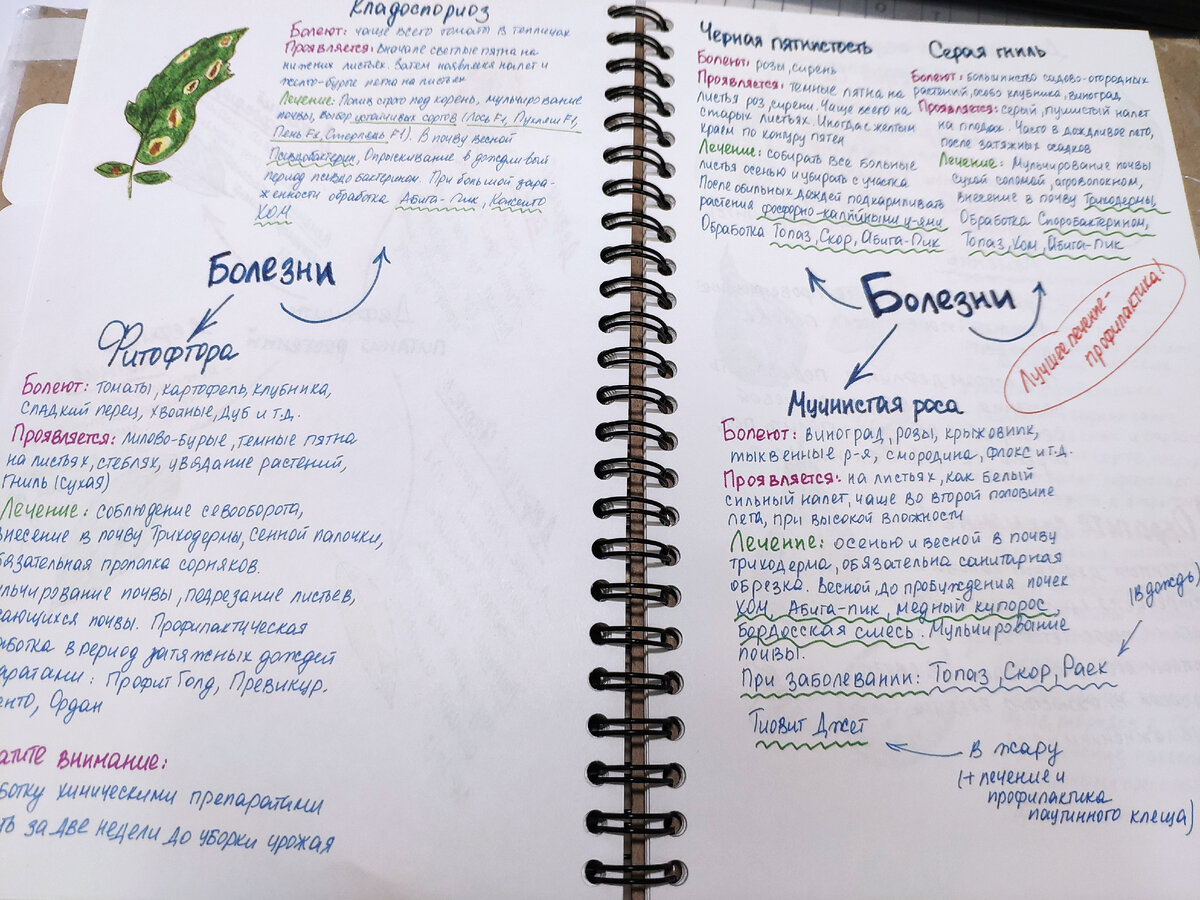 Кладоспориоз
Болеют: чаще всего томаты в теплицах
Проявляется: вначале светлые пятна на
нижних листьях. Затем появляется налет и
желто-бурые пятна на листьях
Лечение: Полив строго под корень, мульчирование
почвы, выбор устойчивых сортов (Лось F1,
F1). В почву весной
Псевдобактерин, Опрыскивание в дождливый
период псевдобактерином. При большой зара-
женности обработка Абига-Пик, Консенто
ХОМ
Болезни
Фитофтора
Болеют: томаты, картофель, клубника,
сладкий перец, хвойные, дуб и т.д.
Проявляется: лилово-бурые, темные пятна
на листьях, стеблях, увядание растений,
гниль (сухая)
Лечение: соблюдение севооборота,
внесение в почву Триходермы, сенной палочки,
бязательная прополка сорняков.
льчирование почвы, подрезание листьев,
сающихся почвы. Профилактическая
аботка в период затяжных дождей
аратами: Профит Голд, Превикур.
енто, Ордан
атите внимание:
ботку химическими препаратами
ть за две недели до уборки урожая
Черная пятнистость
Болеют: розы, сирень
Проявляется: темные пятна на
листья роз, сирени. Чаще всего на
старых листьях. Иногда с желтым
краем по контуру пятен
Лечение: собирать все больные
листья осенью и убирать с участка
После обильных дождей подкармливать
растения фосфорно-калийными у-ями
Обработка Топаз, Скор, Абига-Пик
Серая гниль
Болеют: большинство садово-огородных
растений, особо клубника, виноград
Проявляется: серый, пушистый налет
на плодах. Часто в дождливое лето,
после затяжных осадков
Лечение: Мульчирование почвы
сухой соломой, агроволокном,
внесение в почву Триходермы,
Обработка Споробактерином,
Топаз, Хом, Абига-Пик
Болезни
Лучшее лечение-
профилактика!
Мучнистая роса
Болеют: виноград, розы, крыжовник,
тыквенные р-я, смородина, флокс и т.д.
Проявляется: на листьях, как белый
сильный налет, чаще во второй половине
лета, при высокой влажности
Лечение: осенью и весной в почву
триходерма, обязательна санитарная
обрезка. Весной, до пробуждения почек
ХОМ, Абига-пик, медный купорос,
бордосская смесь. Мульчирование
почвы.
(в дождь)
При заболевании: Топаз, Скор, Раек
Тиовит Джет
В жару
(+ лечение и
профилактика
паутинного клеща)